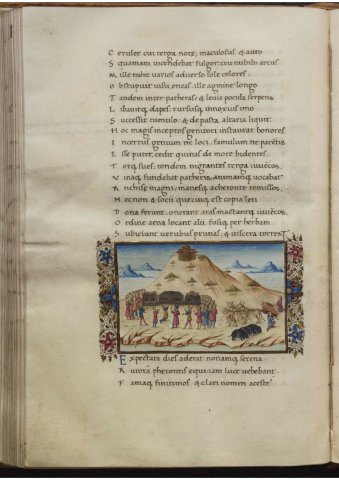 C erulee cui terga note, maculosus & auro
S quamam incendebat fulgor: ceu nubib; arcus
M ille trahit varios adverso sole colores.
O bstupuit visu eneas. ille agmine longo
T andem inter pateras: & levia pocula serpens
L ibavitq; dapes: rursusq; innoxius imo
S uccessit tumulo: & depasta altaria liquit.
H oc magis inceptos genitori instaurat honores
I ncertus genium ne loci, famulum ne parentis
E sse putet: cedit quinas de more bidentes.
T otq; sues: totidem nigrantes terga iuvencos
V inaq; fundebat pateris: animamq; vocabat
A nchise magni: manesq; acheronte remissos.
N ec non & socii que cuiq; est copia leti
D ona ferunt: onerant aras mactantq; iuvencos
O rdine aena locant alii: fusiq; per herbam
S ubiciunt verubus prunas: & viscera torrent
E xpectata dies aderat. nonamq; serena
A urora phetontis equi iam luce vehebant
F amaq; finitimos & clari nomen aceste